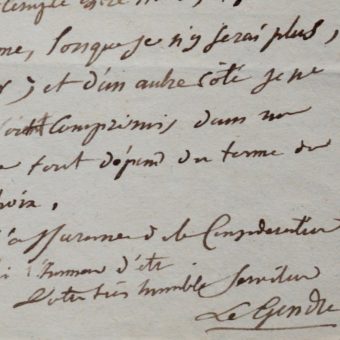 me, lorsque je n'y serai plus,
; et d'un autre côté je ne
compromis dans un
tout dépend du terme de
l'assurance de la Considération
l'honneur d'être
Votre très humble Serviteur
Le Gendre